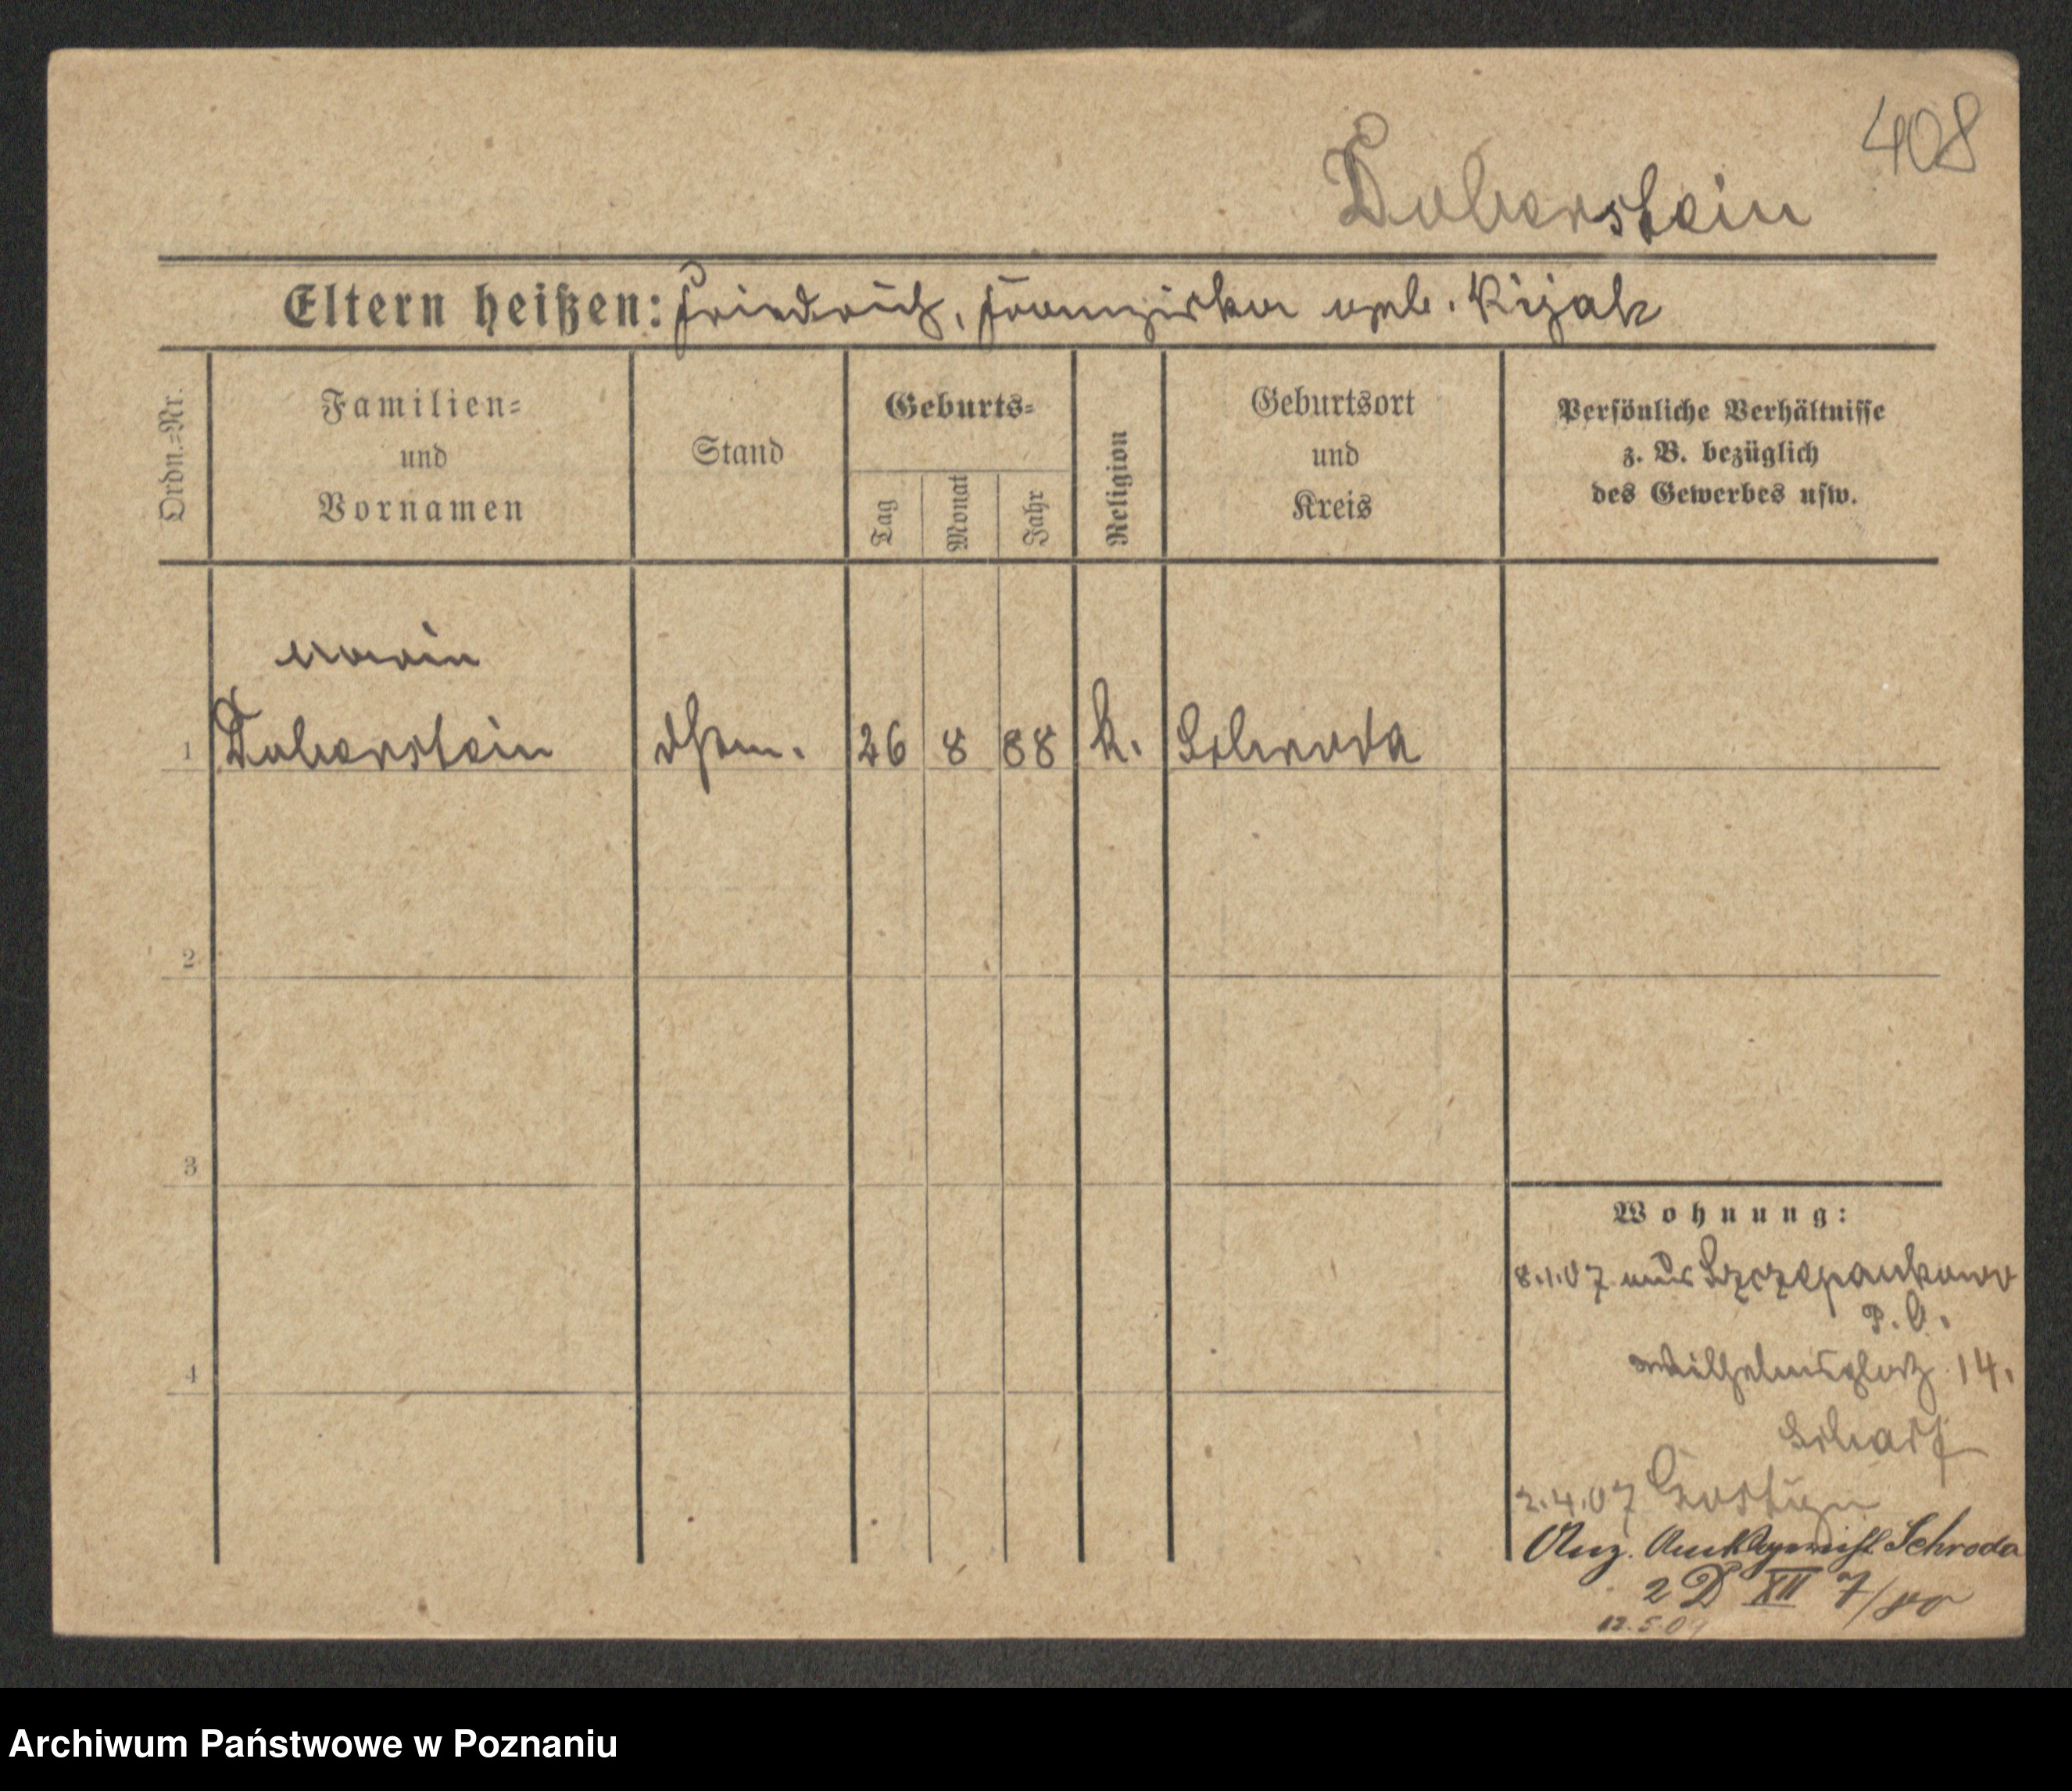 408
Doberstein
Eltern heißen: Friedrich, Franziska geb. Kijak
Ordn.=Nr.
Familien=
und
Vornamen
Stand
Geburts=
Tag
Monat
Jahr
Religion
Geburtsort
und
Kreis
Persönliche Verhältnisse
z. B. bezüglich
des Gewerbes usw.
1 Doberstein 26 8 88 k. Schroda
2
3
4
Wohnung:
8.1.07 aus Szczepankowo
P. O.
Wilhelmsplatz 14.
Scharf
2.4.07 Gostyn
Anz. Schroda
2 D XII 7/
12.5.09
Archiwum Państwowe w Poznaniu